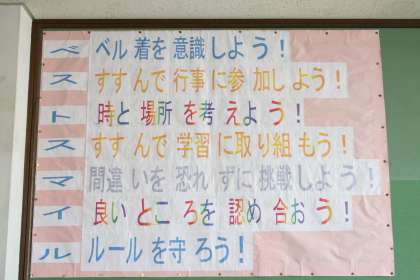 ベ ベル着を意識しよう！
ス すすんで行事に参加しよう！
ト 時と場所を考えよう！
ス すすんで学習に取り組もう！
マ 間違いを恐れずに挑戦しよう！
イ 良いところを認め合おう！
ル ルールを守ろう！